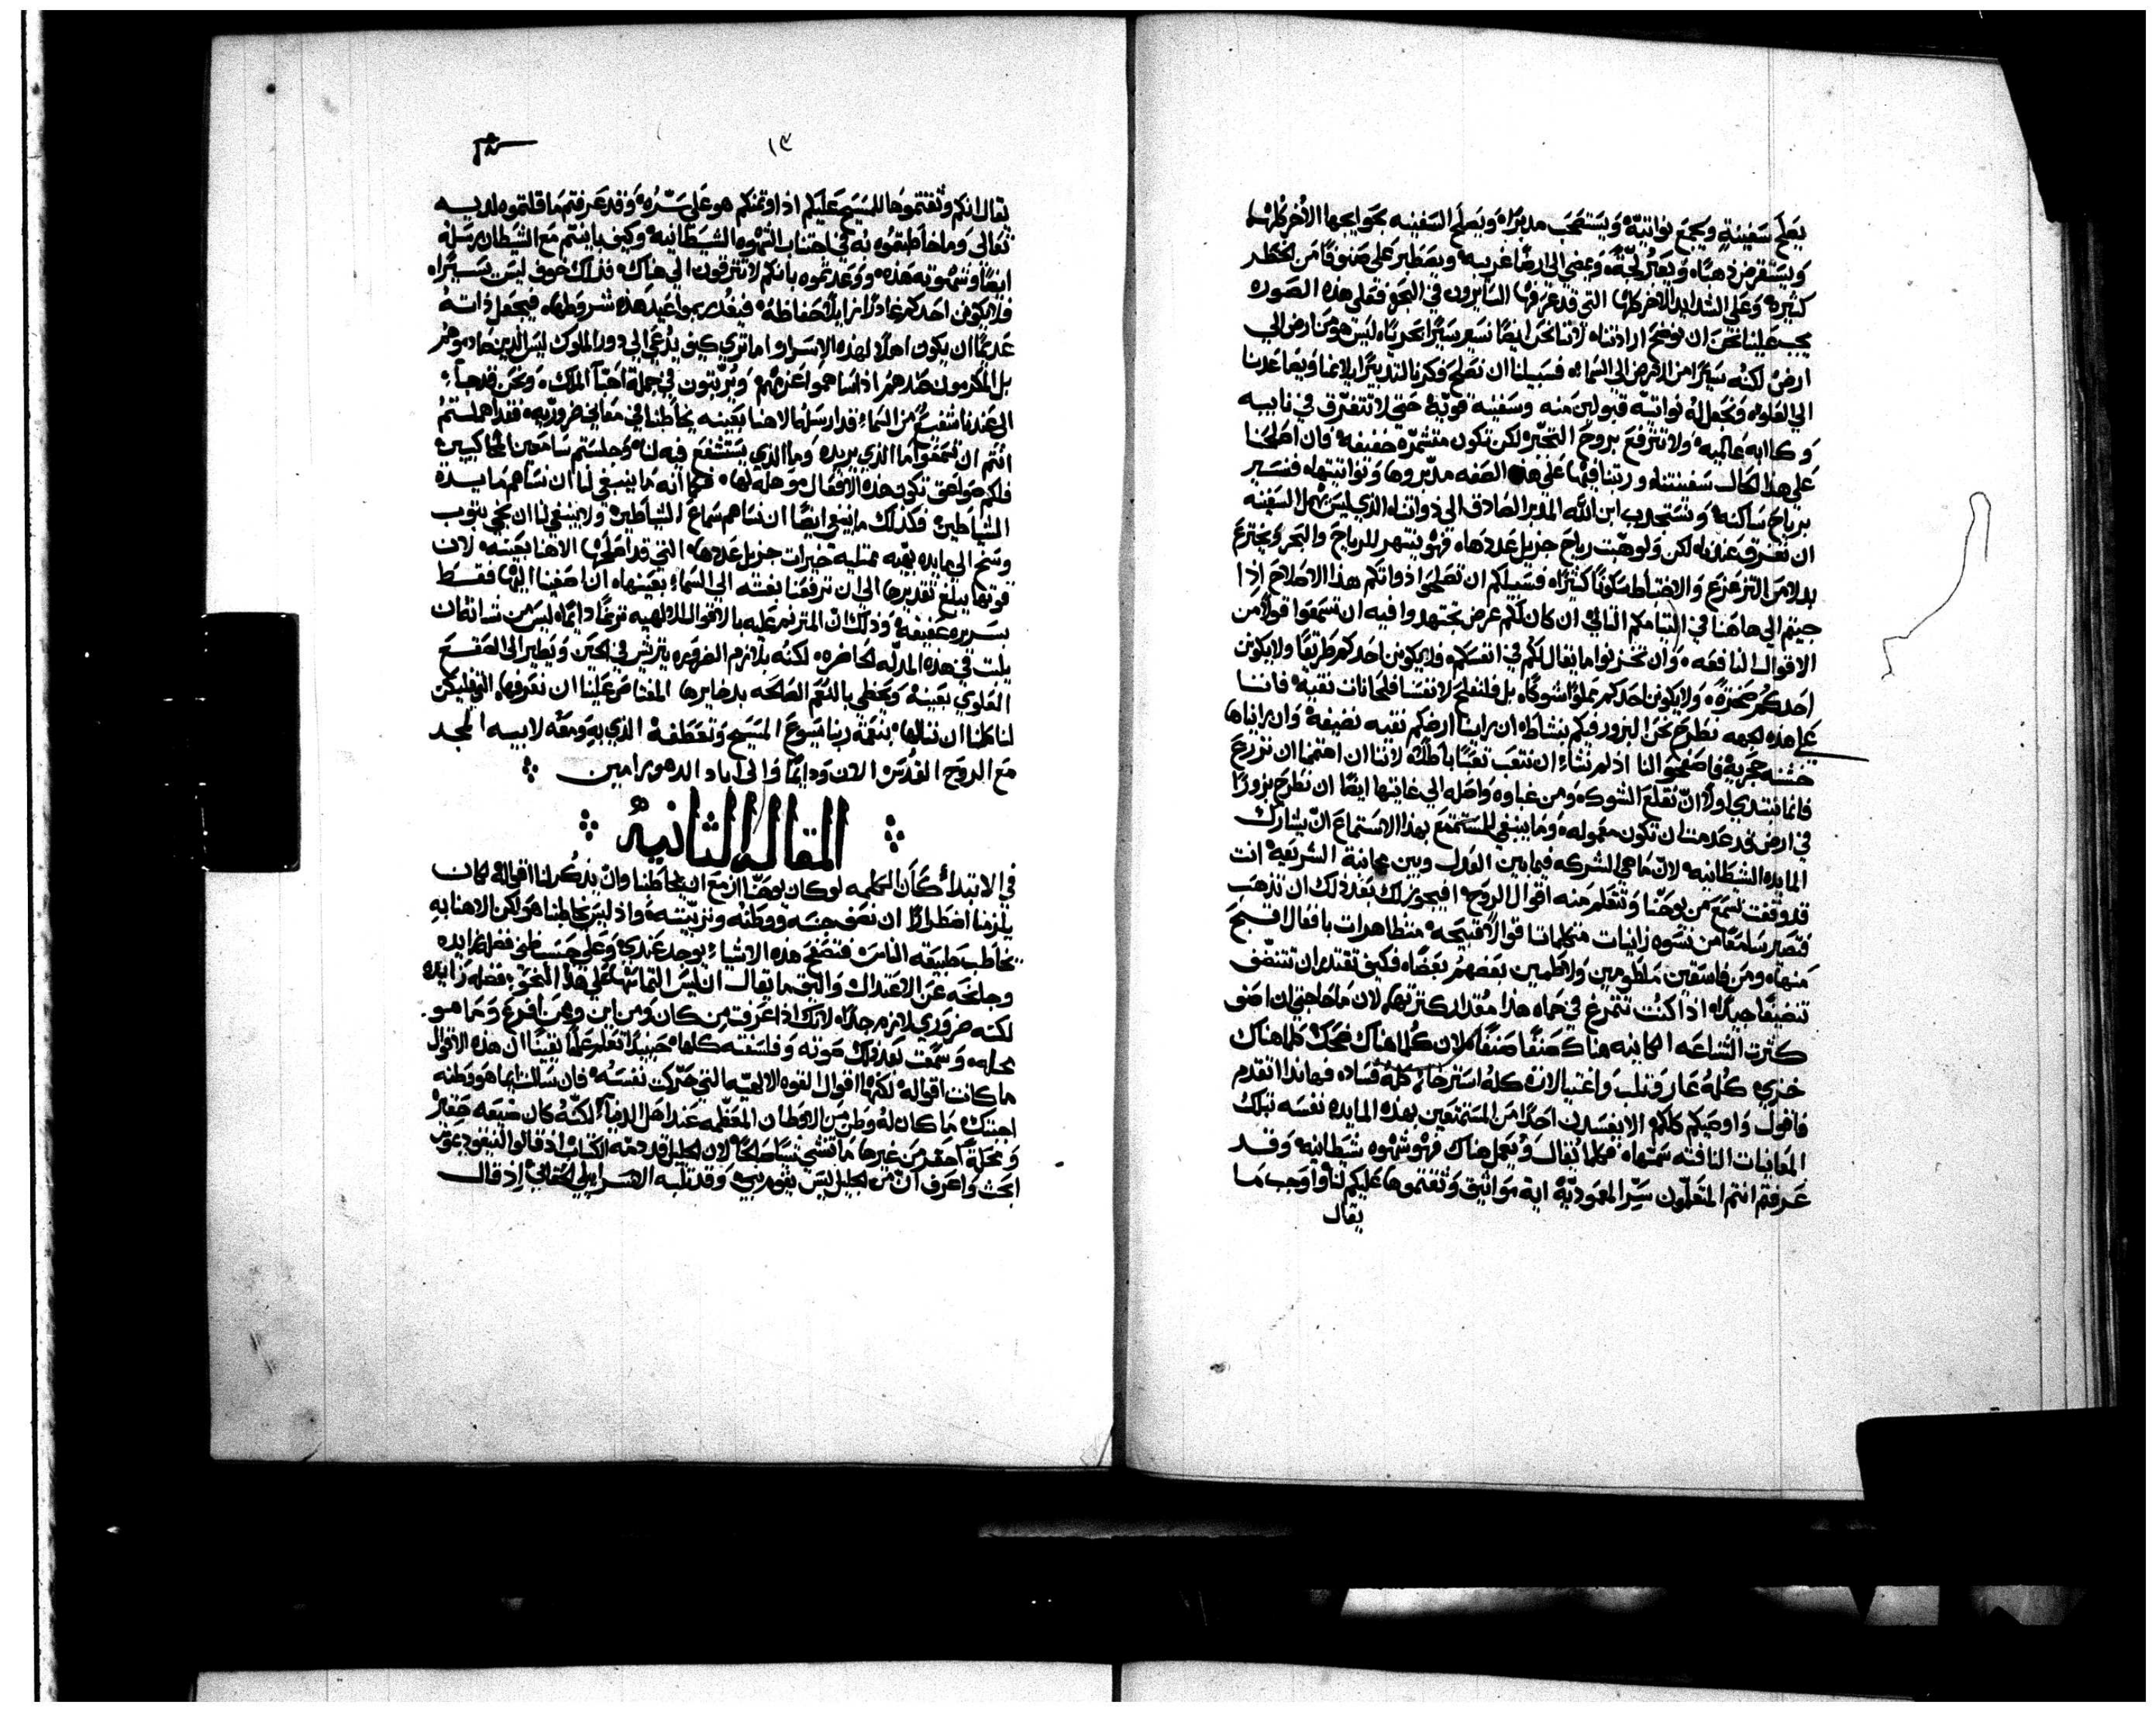 يصلح سفينةٍ ويجمع نواتيّة ويستصحب مدبرًا ويصلح السفينه بحوايجها الأخر كلها
ويستقرض ذهبًا ويعبر لجّة ويمضي الى ارضًا غريبه ويصطبر على صنوفًا من الخطر
كثيرة وعلى الشدايد الاخر كلها التي قد عرفها السايرون في البحر فعلى هذه الصوره
يجب علينا نحن ان نوضح ارادتنا لاننا نحن ايضًا نسير سيرًا بحريًا ليس هو من ارض الى
ارض لكنه سيرًا من الارض الى السماء فسبيلنا ان نصلح فكرنا لتدبيرًا يلايمنا ويصاعدنا
الى العلو ونجعل له نواتيّة قبولين منه وسفينه قويّة حتى لا تتغرّق في نايبه
وكاابه عالميه ولا تترفع بروح التجبّر لكن تكون متشمّره خفيفه فان اصلحنا
على هذا الحال سفينتنا ورتبنا فيها على هذه الصفه مدبّروها ونواتيتها فنسير
برياح ساكنه ونستجدب ابن الله المدبر الصادق الى ذواتنا الذي ليس يهمل السفينه
ان تغرق عنايته لكن ولو هبّت رياح جزيل عددها فهو ينتهر للرياح والبحر ويخترع
بدلا من التزعزع والاختباط سكونًا كثيرًا فسبيلكم ان تصلحوا ذواتكم هذا الاصلاح اذا
جيتم الى هاهنا في التيامكم التالي ان كان لكم غرض تجتهدوا فيه ان تسمعوا قولًا من
الاقوال النافعه وان تخزنوا ما يقال لكم في انفسكم ولا يكونن احدكم طريقًا ولا يكونن
احدكم صخرة ولا يكونن احدكم مملوًا شوكًا بل فلنفلح لانفسنا فلحانات نقيه فاننا
على هذه الجهه نطرح نحن البزور فيكم بنشاط ان راينا ارضكم نقيه نضيفة وان رايناها
خشنه حجريه فاصفحوا لنا اذ لم نشاء ان نتعب تعبًا باطلًا لاننا ان اهتممنا ان نزرع
فانما نبتدي اولًا ان نقلع الشوك ومن غباوه واصله الى غايتها ايضًا ان نطرح بزورًا
في ارض قد عدمت ان تكون معموله وما ينبغي للمستمتع بهذا الاستماع ان يشارك
المايده الشيطانيه لان ما هي الشركه فيما بين العدل وبين مجانبة الشريعه انت
قد وقفت تسمع من يوحنا وتتعلم منه اقوال الروح افيجوز لك بعد ذلك ان تذهب
فتصير سامعًا من نسوه زانيات متكلمات اقوالًا قبيحه متظاهرات بافعال اقبح
منها ومن فاسقين ملطومين ولاطمين بعضهم بعضًا فكيف تقتدر ان تتنضّف
تنضيفًا جيدًا اذا كنت تتمرغ في حماه هذا مقدار كثرتها لان ما حاجتي ان اصف
كثرت الشناعه الكاينه هناك صنفًا صنفًا لان كلما هناك ضحك كلما هناك
خزي كله عار وثلب واغتيالات كله استرخا كله فساد فهانذا اتقدم
فاقول واوصيكم كلكم الا يفسدن احدًا من المستمتعين بهذه المايده نفسه بتلك
المعاينات التافته سمتها فكلما يقال ويعمل هناك فهو شهوه شيطانيه وقد
عرفتم انتم المتعلّمون سرّ المعموديّة اية مواثيق وثقتموها عليكم لنا واوجب ما
يقال
١٣
يقال انكم وثقتموها للمسيح عليكم اذ اوتمنكم هو على سرّه وقد عرفتم ما قلتموه لديه
تعالى وما خاطبتموه به في اجتناب الشهوه الشيطانيه وكيف باينتم مع الشيطان رسله
ايضًا وشهوته هذه ووعدتموه بانكم لا تترقون الى هناك فذلك خوف ليس يسيرًا
فلا يكونن احدكم عادلًا زايلًا حفاظه فيغدر بمواعيد هذه شروطها فيجعل ذاته
عديمًا ان يكون اهلًا لهذه الاسرار اما ترى كيف يدعى الى دور الملوك ليس الذين صادموهم
بل المكرمون عندهم اذا ساهموا عزمهم ويرتبون في جملة احبّا الملك ونحن قد جاء
الى عندنا شفيع من السماء قد ارسله الاهنا بعينه يخاطبنا في معاني ضروريه فقد اهملتم
انتم ان تسمعوا ما الذي يريده وما الذي يستشفع فيه لنا وجلستم سامعين الحاكيين
فلكم صواعق تكون هذه الافعال موهله لها فكما انه ما ينبغي لنا ان نساهم مايدة
الشياطين فكذلك ما ينبغي ايضًا ان نساهم سماع الشياطين ولا ينبغي لنا ان نجي بثوب
وسخ الى مايده بهيّه ممتليه خيرات جزيل عددها التي قد اصلحها الاهنا بعينه لان
قوتها يبلغ تقديرها الى ان ترفعنا بغته الى السماء بعينها ان اصغينا اليها فقط
بسريره عفيفه وذلك ان المترنم عليه بالاقوال الالهيه ترنمًا دايمًا ليس من شانه ان
يلبث في هذه المذلّه الحاضره لكنه يلازم الضروره يترش في الحين ويطير الى الصقع
العلوي بعينه ويحظى بالنعم الصالحه بدخايرها المغتاص علينا ان نعرفها التي فليكن
لنا كلنا ان ننالها بنعمة ربنا يسوع المسيح وتعطفه الذي به ومعه لابيه المجد
مع الروح القدس الان ودايمًا والى اباد الدهور امين
المقاله الثانيه
في الابتداء كان الكلمه لو كان يوحنا ازمع ان يخاطبنا وان يذكر لنا اقواله لكان
يلزمنا اضطرارًا ان نصف جنسه ووطنه وتربيته واذ ليس يخاطبنا هو لكن الاهنا به
يخاطب طبيعة الناس فتصفح هذه الاشياء يوجد عندي وعلى حسب ظني فضله زايده
وجانحه عن الاعتدال واليق ما يقال ان ليس التماسها على هذا النحو فضله زايده
لكنه ضروري لازم جدًا لانك اذا عرفت من كان ومن اين وممن افرع وما هو
محله وسمعت بعد ذلك صوته وفلسفته كلها حينيذ تعلم علمًا يقينًا ان هذه الاقوال
ما كانت اقواله لكنها اقوال القوه الالهيّه التي حرّكت نفسه فان سالت ايما هو وطنه
اجبتك ما كان له وطن من الاوطان المعظمه عند اهل الدنيا لكنه كان ضيعه صغيرة
ومحلة احقر من غيرها ما تنشي نشا صالحًا لان الجليل قد ذمّه الكتاب اذ قالوا لنيقوديموس
ابحث واعرف ان من الجليل ليس يقوم نبي وقد ثلبه الاسراييلي الحقاني اذ قال